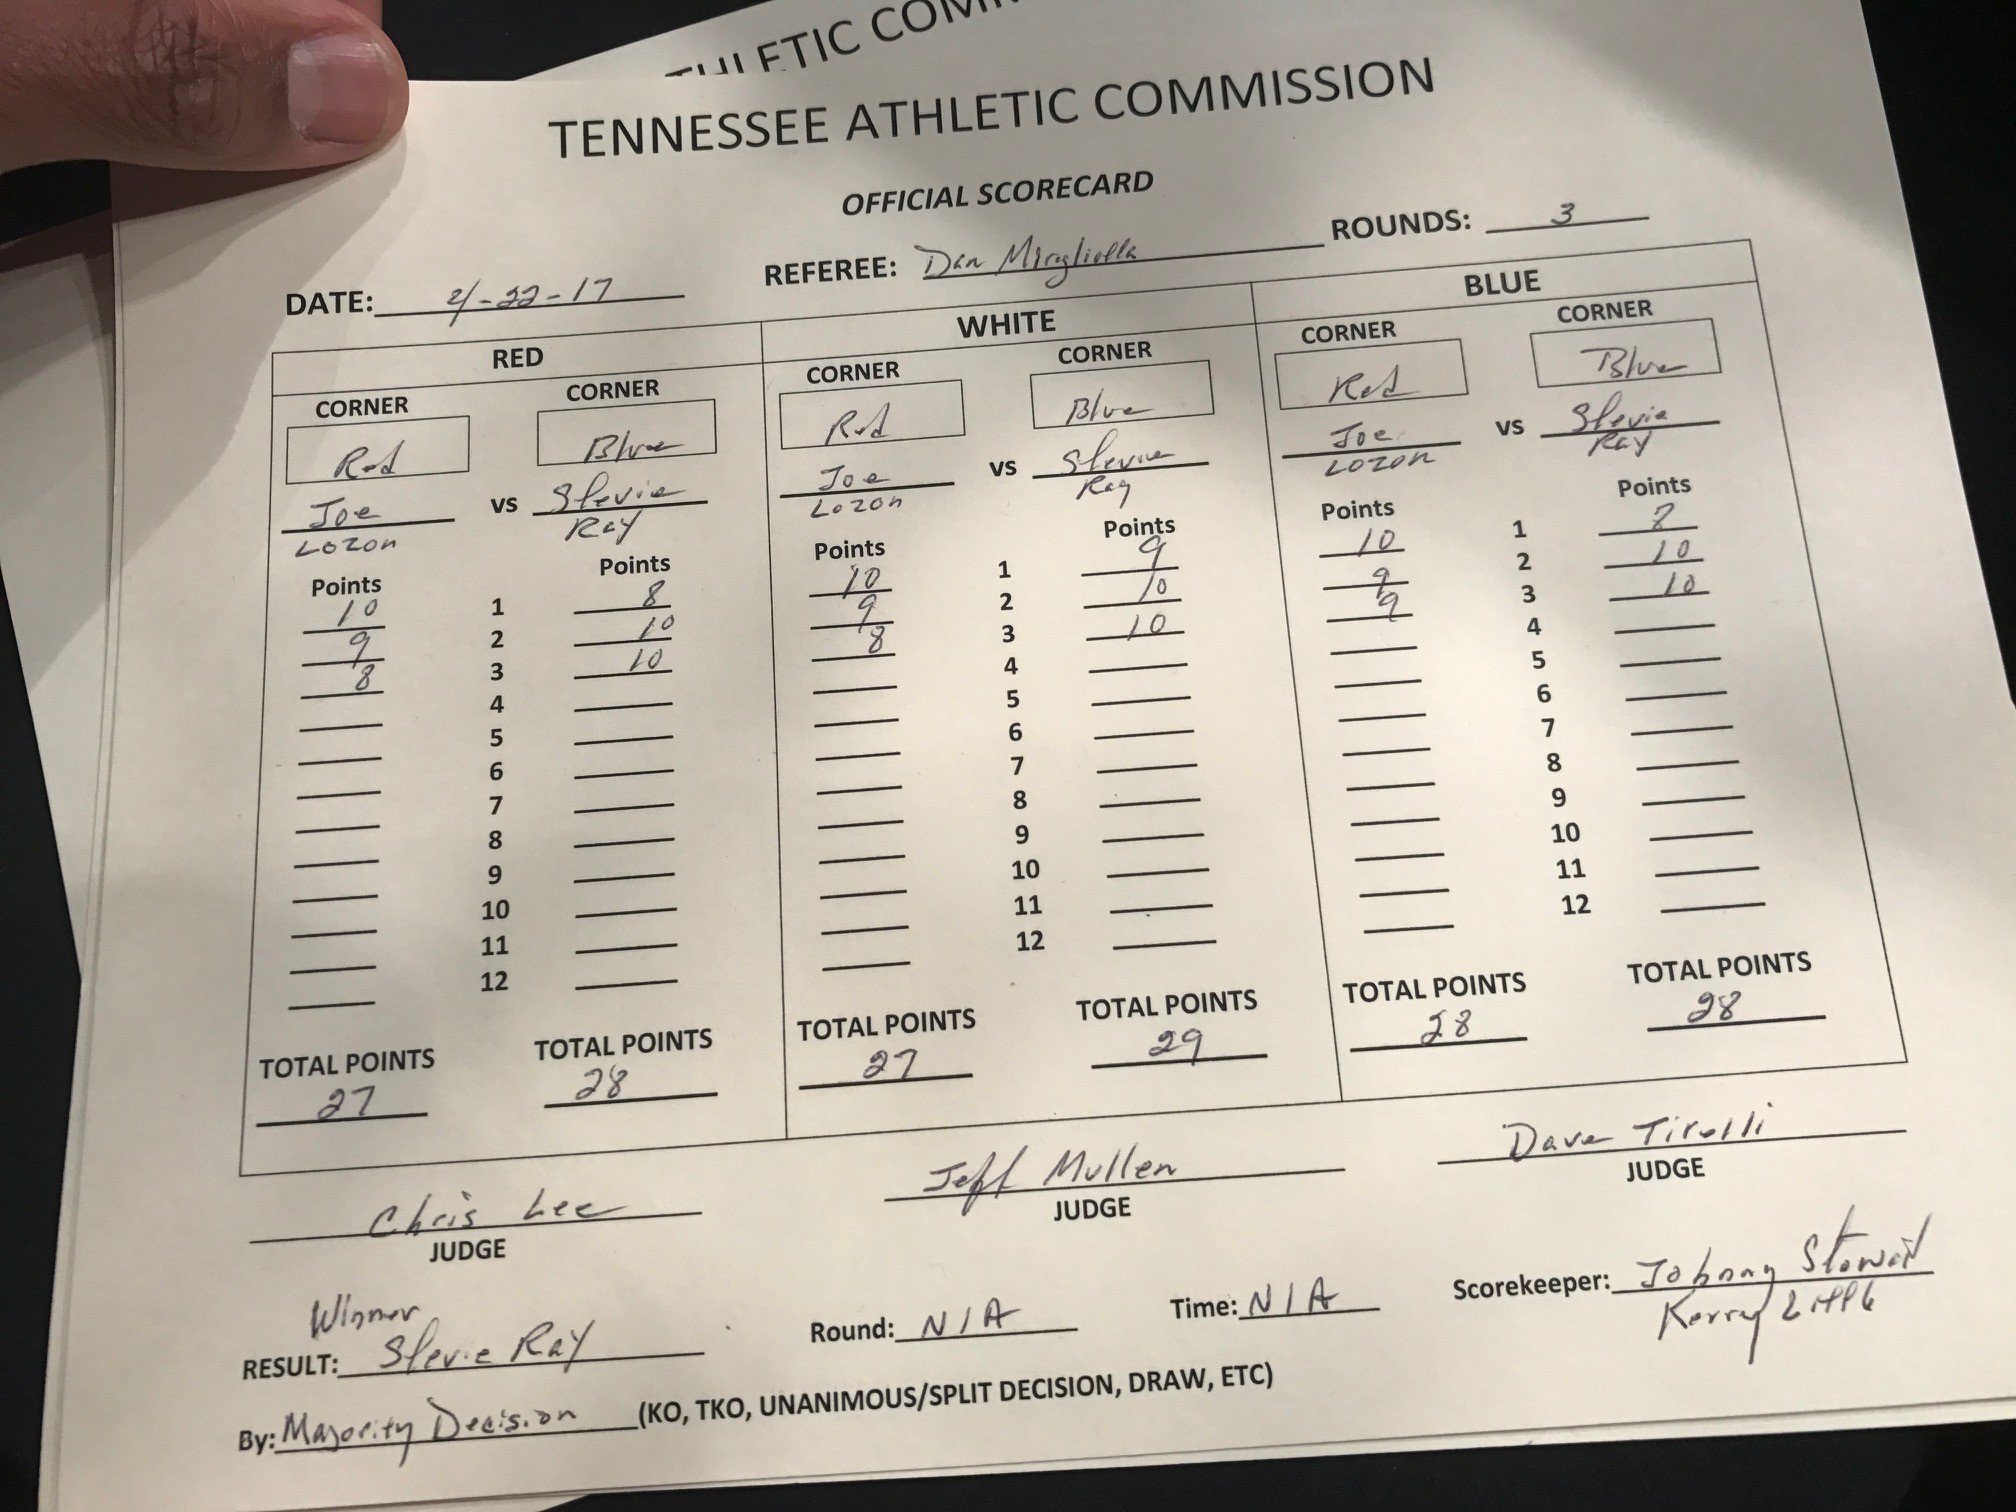 THLETIC COM
TENNESSEE ATHLETIC COMMISSION
OFFICIAL SCORECARD
DATE: 4-22-17 REFEREE: Dan Miragliotta ROUNDS: 3
RED WHITE BLUE
CORNER CORNER CORNER CORNER CORNER CORNER
Red Blue Red Blue Red Blue
Joe vs Stevie Joe vs Stevie Joe vs Stevie
Lozon Ray Lozon Ray Lozon Ray
Points Points Points Points Points Points
10 1 8 10 1 9 10 1
9 2 10 9 2 10 9 2 10
8 3 10 8 3 10 9 3 10
4 4 4
5 5 5
6 6 6
7 7 7
8 8 8
9 9 9
10 10 10
11 11 11
12 12 12
TOTAL POINTS TOTAL POINTS TOTAL POINTS TOTAL POINTS TOTAL POINTS TOTAL POINTS
27 28 27 29 28 28
Chris Lee Jeff Mullen Dave Tirelli
JUDGE JUDGE JUDGE
Winner
RESULT: Stevie Ray Round: N/A Time: N/A Scorekeeper: Johnny Stewart
Kerry Little
By: Majority Decision (KO, TKO, UNANIMOUS/SPLIT DECISION, DRAW, ETC)